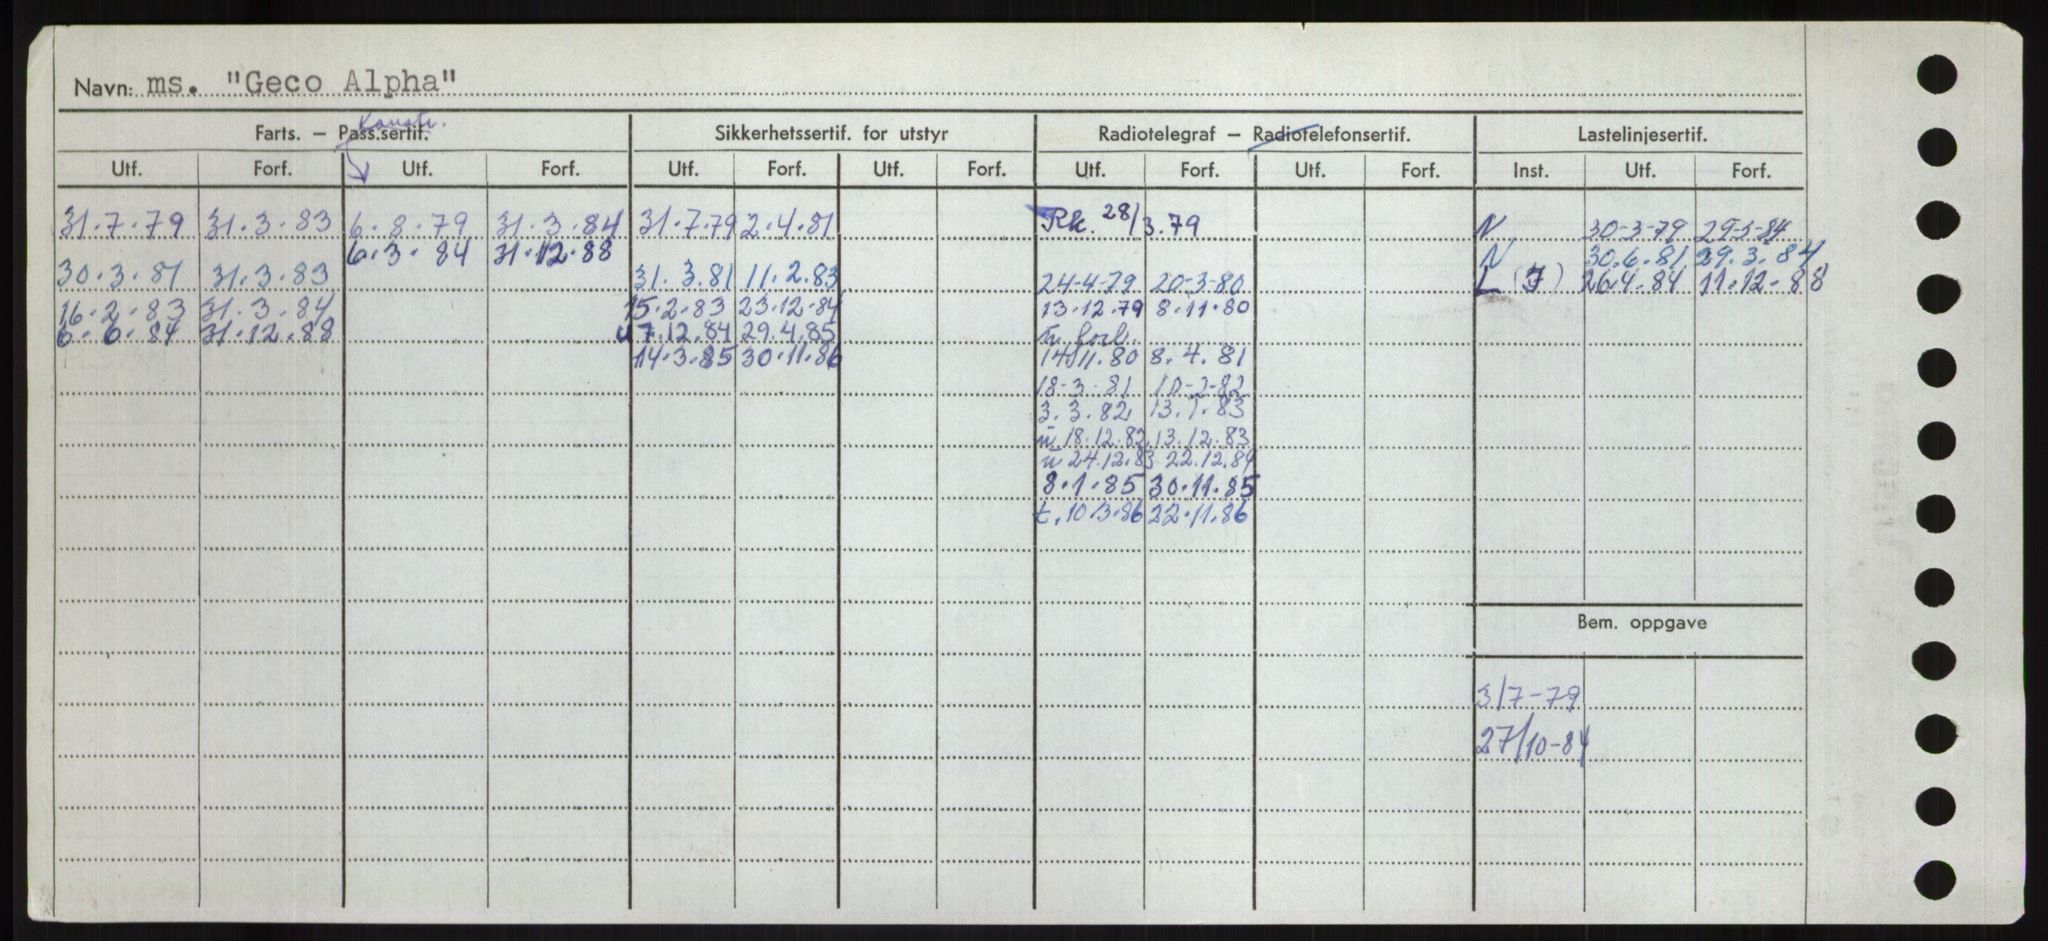 Navn: ms. "Geco Alpha"
Konstr.
Farts. — Pass.sertif. Sikkerhetssertif. for utstyr Radiotelegraf — Radiotelefonsertif. Lastelinjesertif.
Utf. Forf. Utf. Forf. Utf. Forf. Utf. Forf. Utf. Forf. Utf. Forf. Inst. Utf. Forf.
31.7.79 31.3.83 6.8.79 31.3.84 31.7.79 2.4.81 Rk. 28/3.79 N 30-3-79 29-3-84
6.3.84 31.12.88 N 30.6.81 29.3.84
30.3.81 31.3.83 31.3.81 11.2.83 24-4-79 20-3-80 L ( ) 26.4.84 11.12.88
16.2.83 31.3.84 15.2.83 23.12.84 13.12.79 8.11.80
6.6.84 31.12.88 u 7.12.84 29.4.85 forl.
14.3.85 30.11.86 14.11.80 8.4.81
18-3-81 10-2-82
3.3.82 13.1.83
u 18.12.82 13.12.83
u 24.12.83 22.12.84
8.1.85 30.11.85
t. 10.3.86 22.11.86
Bem. oppgave
3/7-79
27/10-84